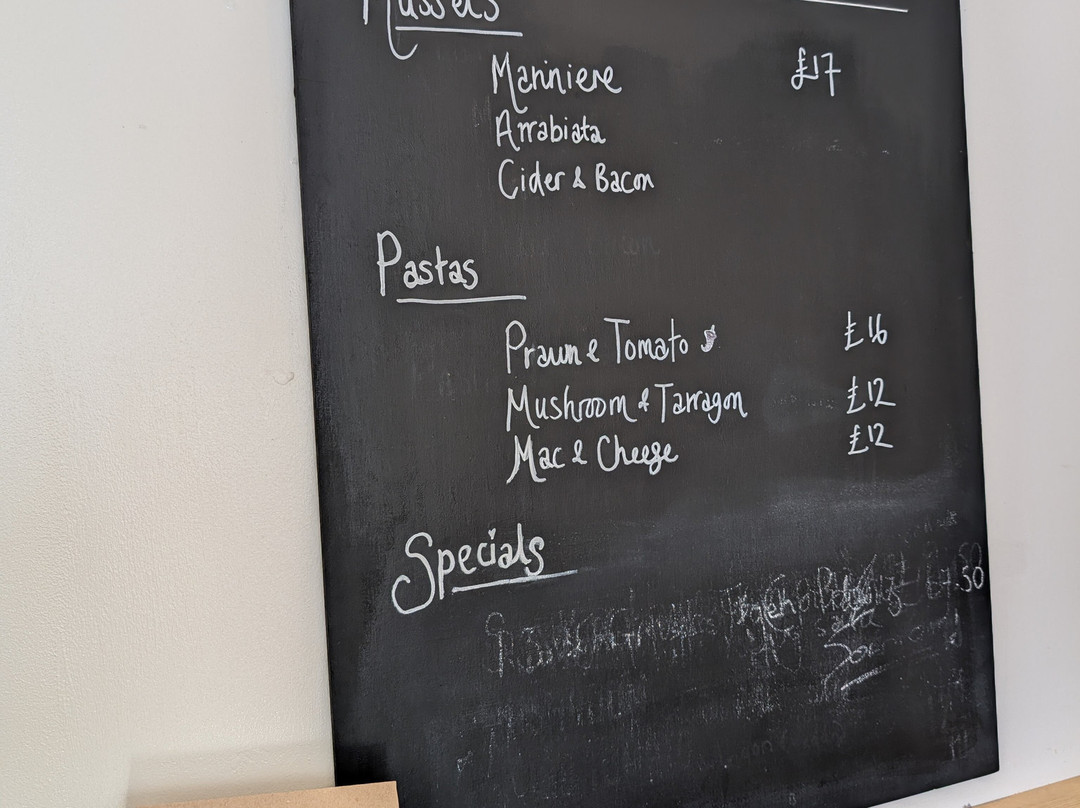 Mussels
Mariniere £17
Arrabiata
Cider & Bacon
Pastas
Prawn & Tomato £16
Mushroom & Tarragon £12
Mac & Cheese £12
Specials